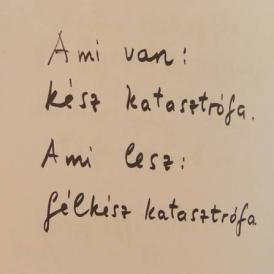 Ami van:
kész katasztrófa.
Ami lesz:
félkész katasztrófa.